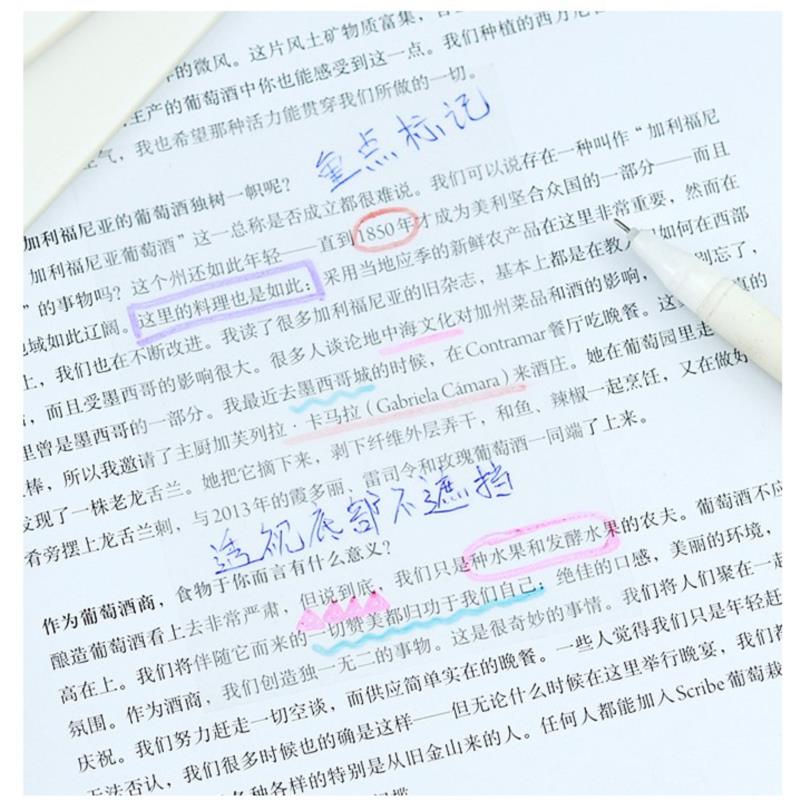 的微风。这片风土矿物质富集，
主产的葡萄酒中你也能感受到这一点。我们种植的西方
气，我也希望那种活力能贯穿我们所做的一切。
重点标记
加利福尼亚的葡萄酒独树一帜呢？
加利福尼亚葡萄酒”这一总称是否成立都很难说。我们可以说存在一种叫作“加利福尼
”的事物吗？这个州还如此年轻——直到1850年才成为美利坚合众国的一部分——而且
域如此辽阔。这里的料理也是如此：采用当地应季的新鲜农产品在这里非常重要，然而在
上，我们也在不断改进。我读了很多加利福尼亚的旧杂志，基本上都是在教人们如何在西部
，而且受墨西哥的影响很大。很多人谈论地中海文化对加州菜品和酒的影响，别忘了，
里曾是墨西哥的一部分。我最近去墨西哥城的时候，在Contramar餐厅吃晚餐。这真的
棒，所以我邀请了主厨加芙列拉·卡马拉（Gabriela Cámara）来酒庄。她在葡萄园里走
发现了一株老龙舌兰。她把它摘下来，剥下纤维外层弄干，和鱼、辣椒一起烹饪，又在做好
看旁摆上龙舌兰刺，与2013年的霞多丽、雷司令和玫瑰葡萄酒一同端了上来。
透视底部不遮挡
作为葡萄酒商，食物于你而言有什么意义？
酿造葡萄酒看上去非常严肃，但说到底，我们只是种水果和发酵水果的农夫。葡萄酒不应
高在上。我们将伴随它而来的一切赞美都归功于我们自己：绝佳的口感，美丽的环境，
氛围。作为酒商，我们创造独一无二的事物。这是很奇妙的事情。我们将人们聚在一起
庆祝。我们努力赶走一切空谈，而供应简单实在的晚餐。一些人觉得我们只是年轻赶
无法否认，我们很多时候也的确是这样——但无论什么时候在这里举行晚宴，我们都
各种各样的特别是从旧金山来的人。任何人都能加入Scribe葡萄栽